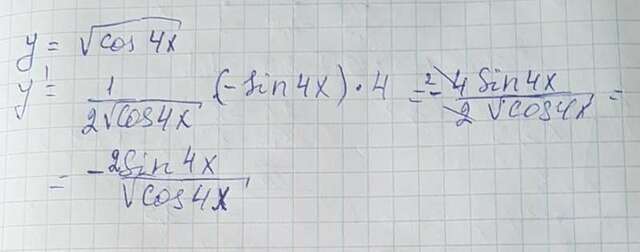 y = √cos 4x
y' = 1/(2√cos4x) (-sin 4x) · 4 = -4 sin 4x/(2 √cos4x) =
= -2sin 4x/√cos 4x